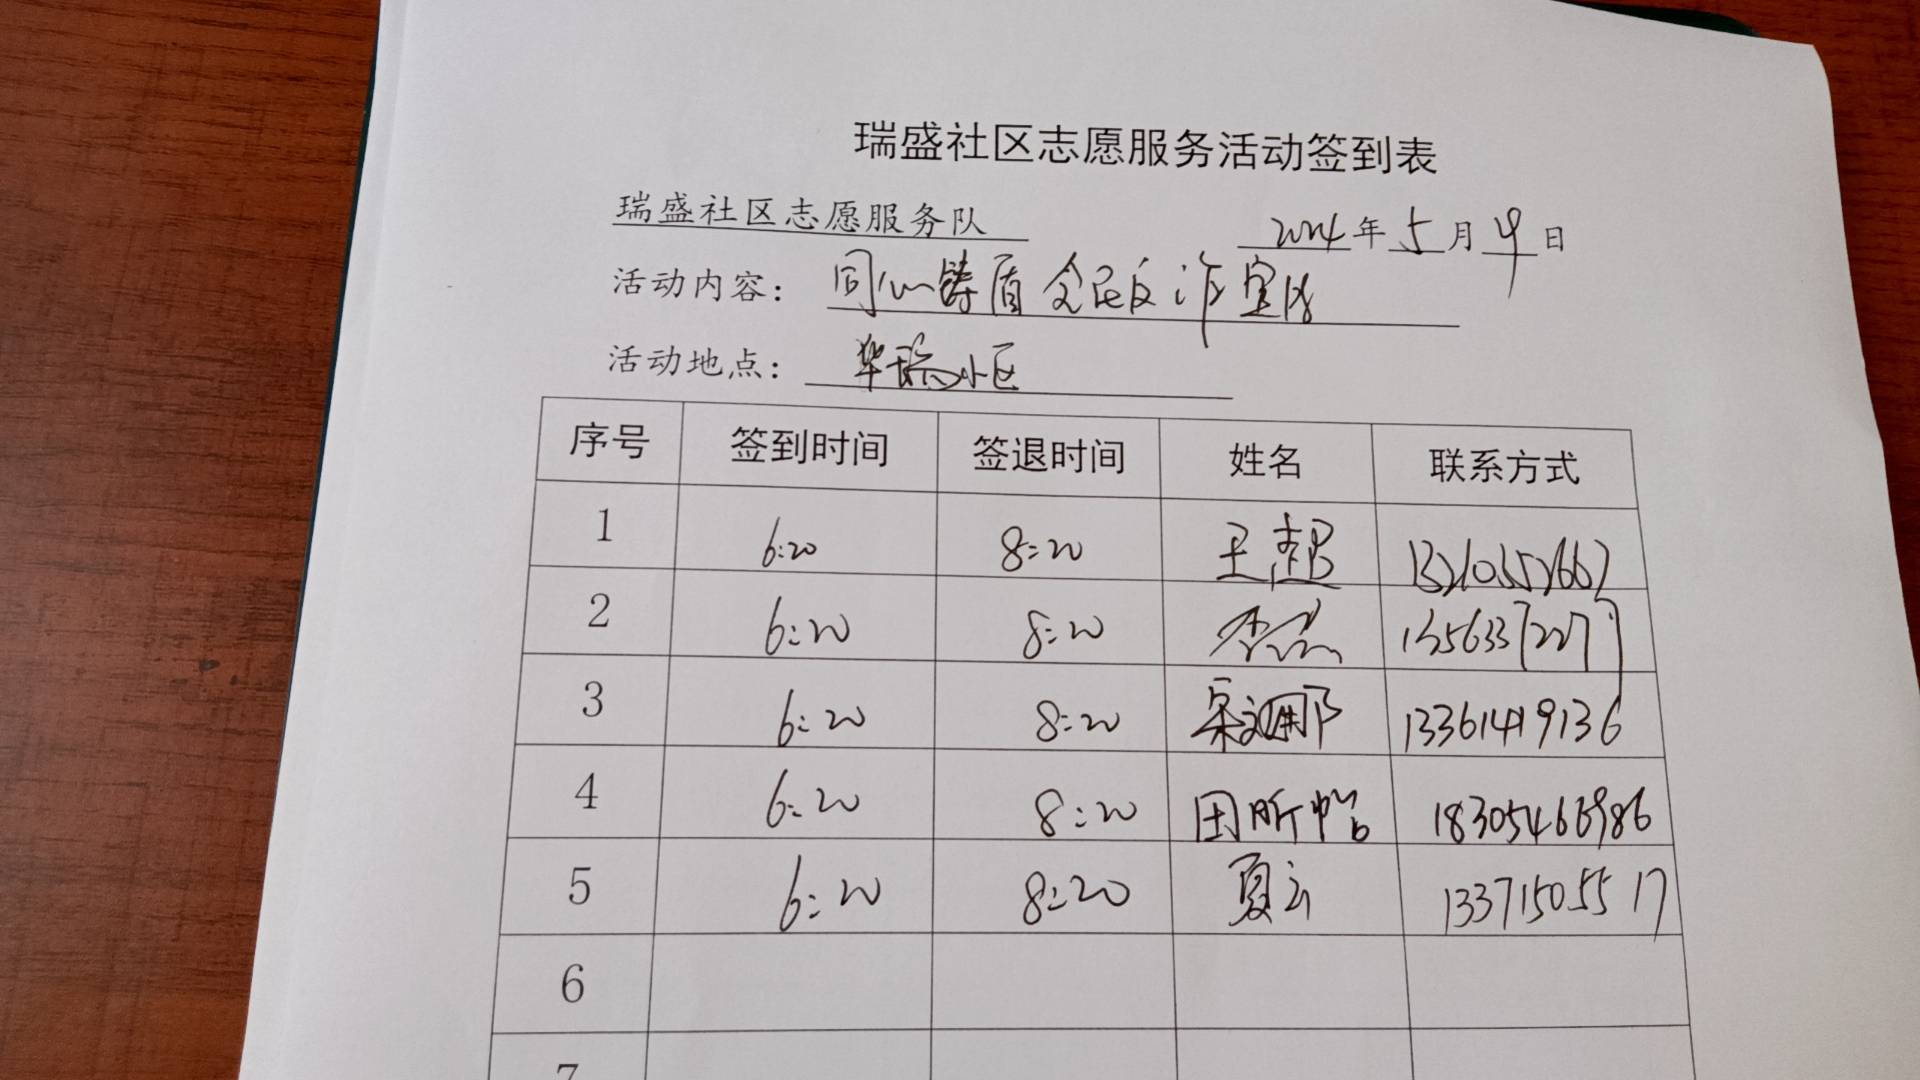 瑞盛社区志愿服务活动签到表
瑞盛社区志愿服务队 2024年5月9日
活动内容: 同心铸盾 全民反诈宣传
活动地点: 华瑞小区
序号 签到时间 签退时间 姓名 联系方式
1 6:20 8:20 王超
2 6:20 8:20 13563372277
3 6:20 8:20 13361419136
4 6:20 8:20 田昕怡 18305466986
5 6:20 8:20 夏云 13371505517
6
7